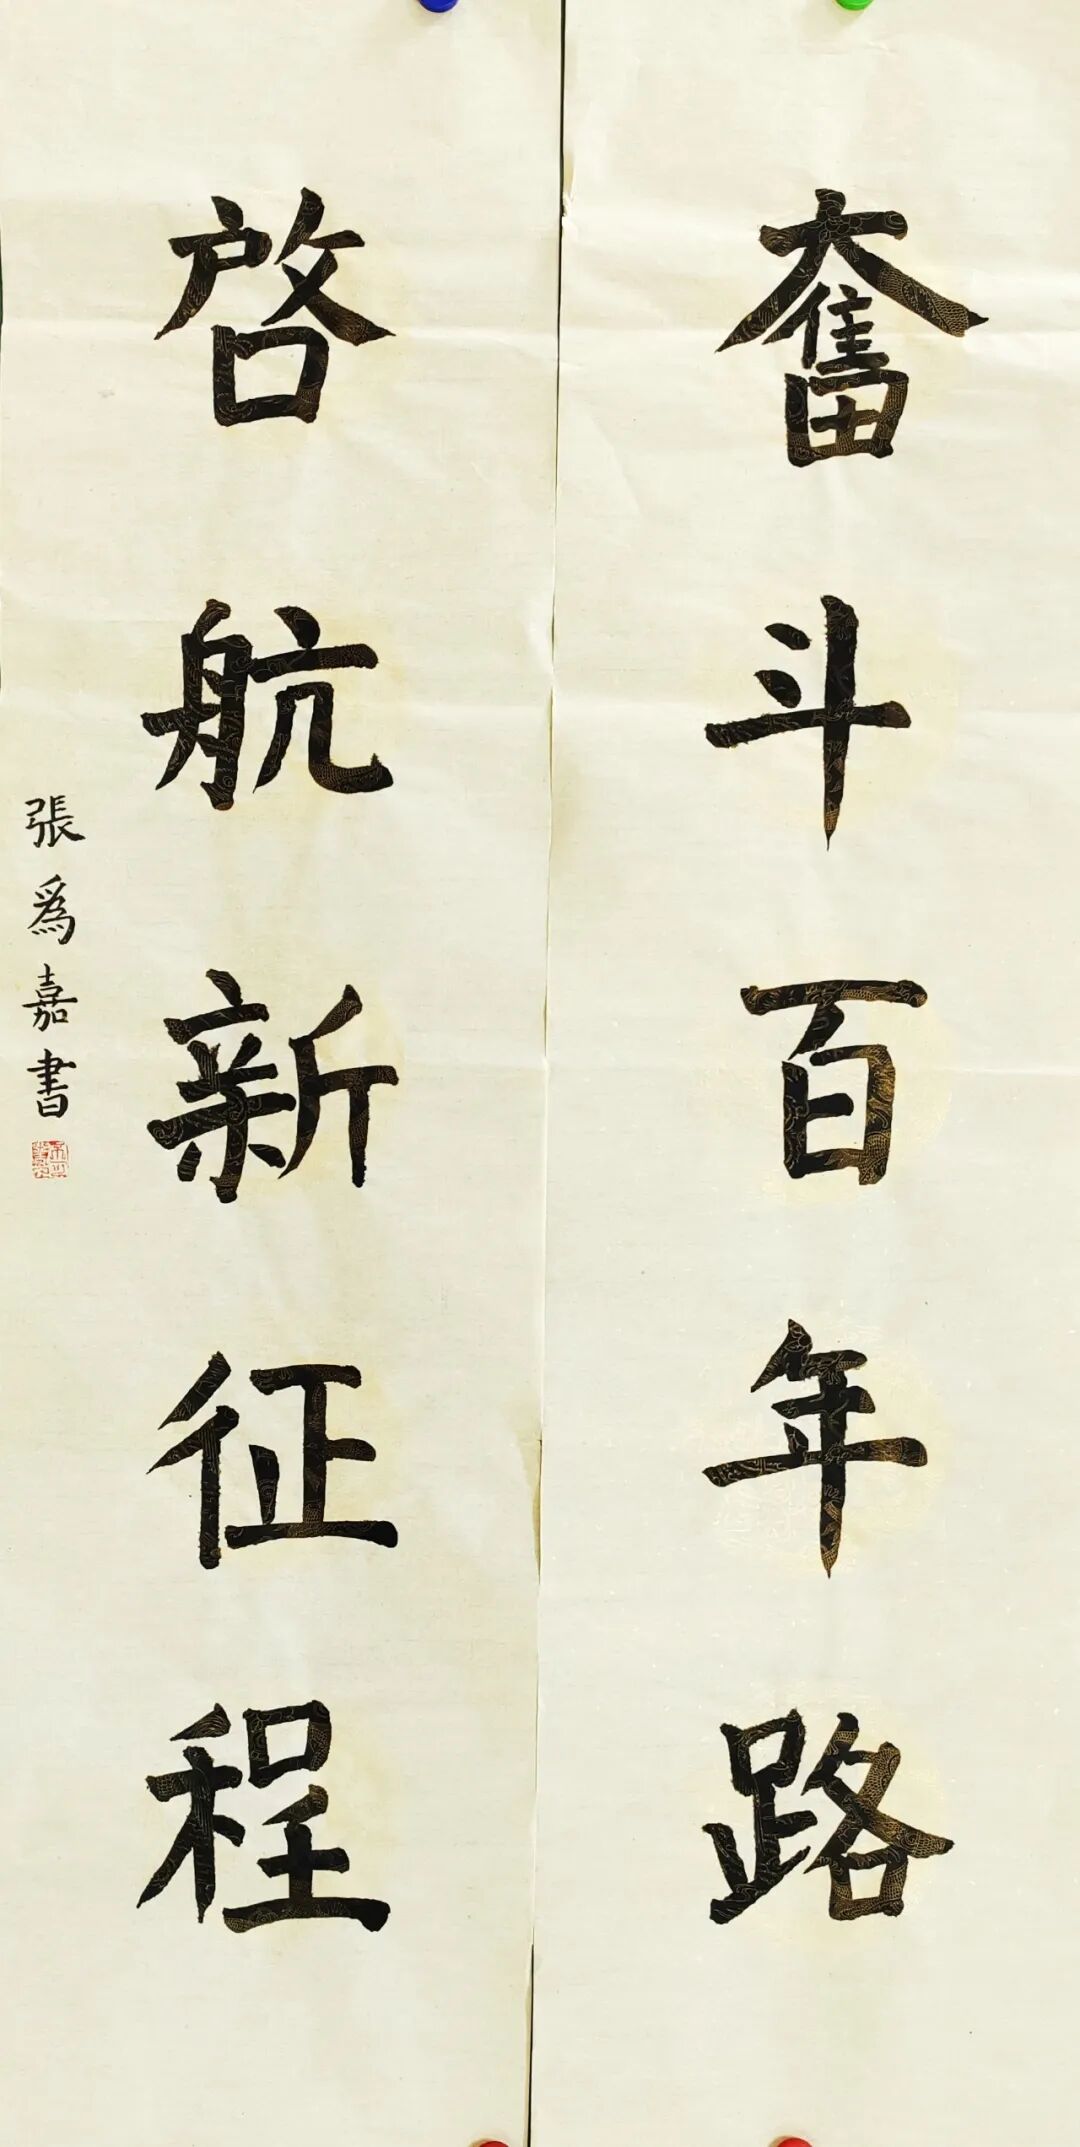 奮斗百年路
啓航新征程
張爲嘉書